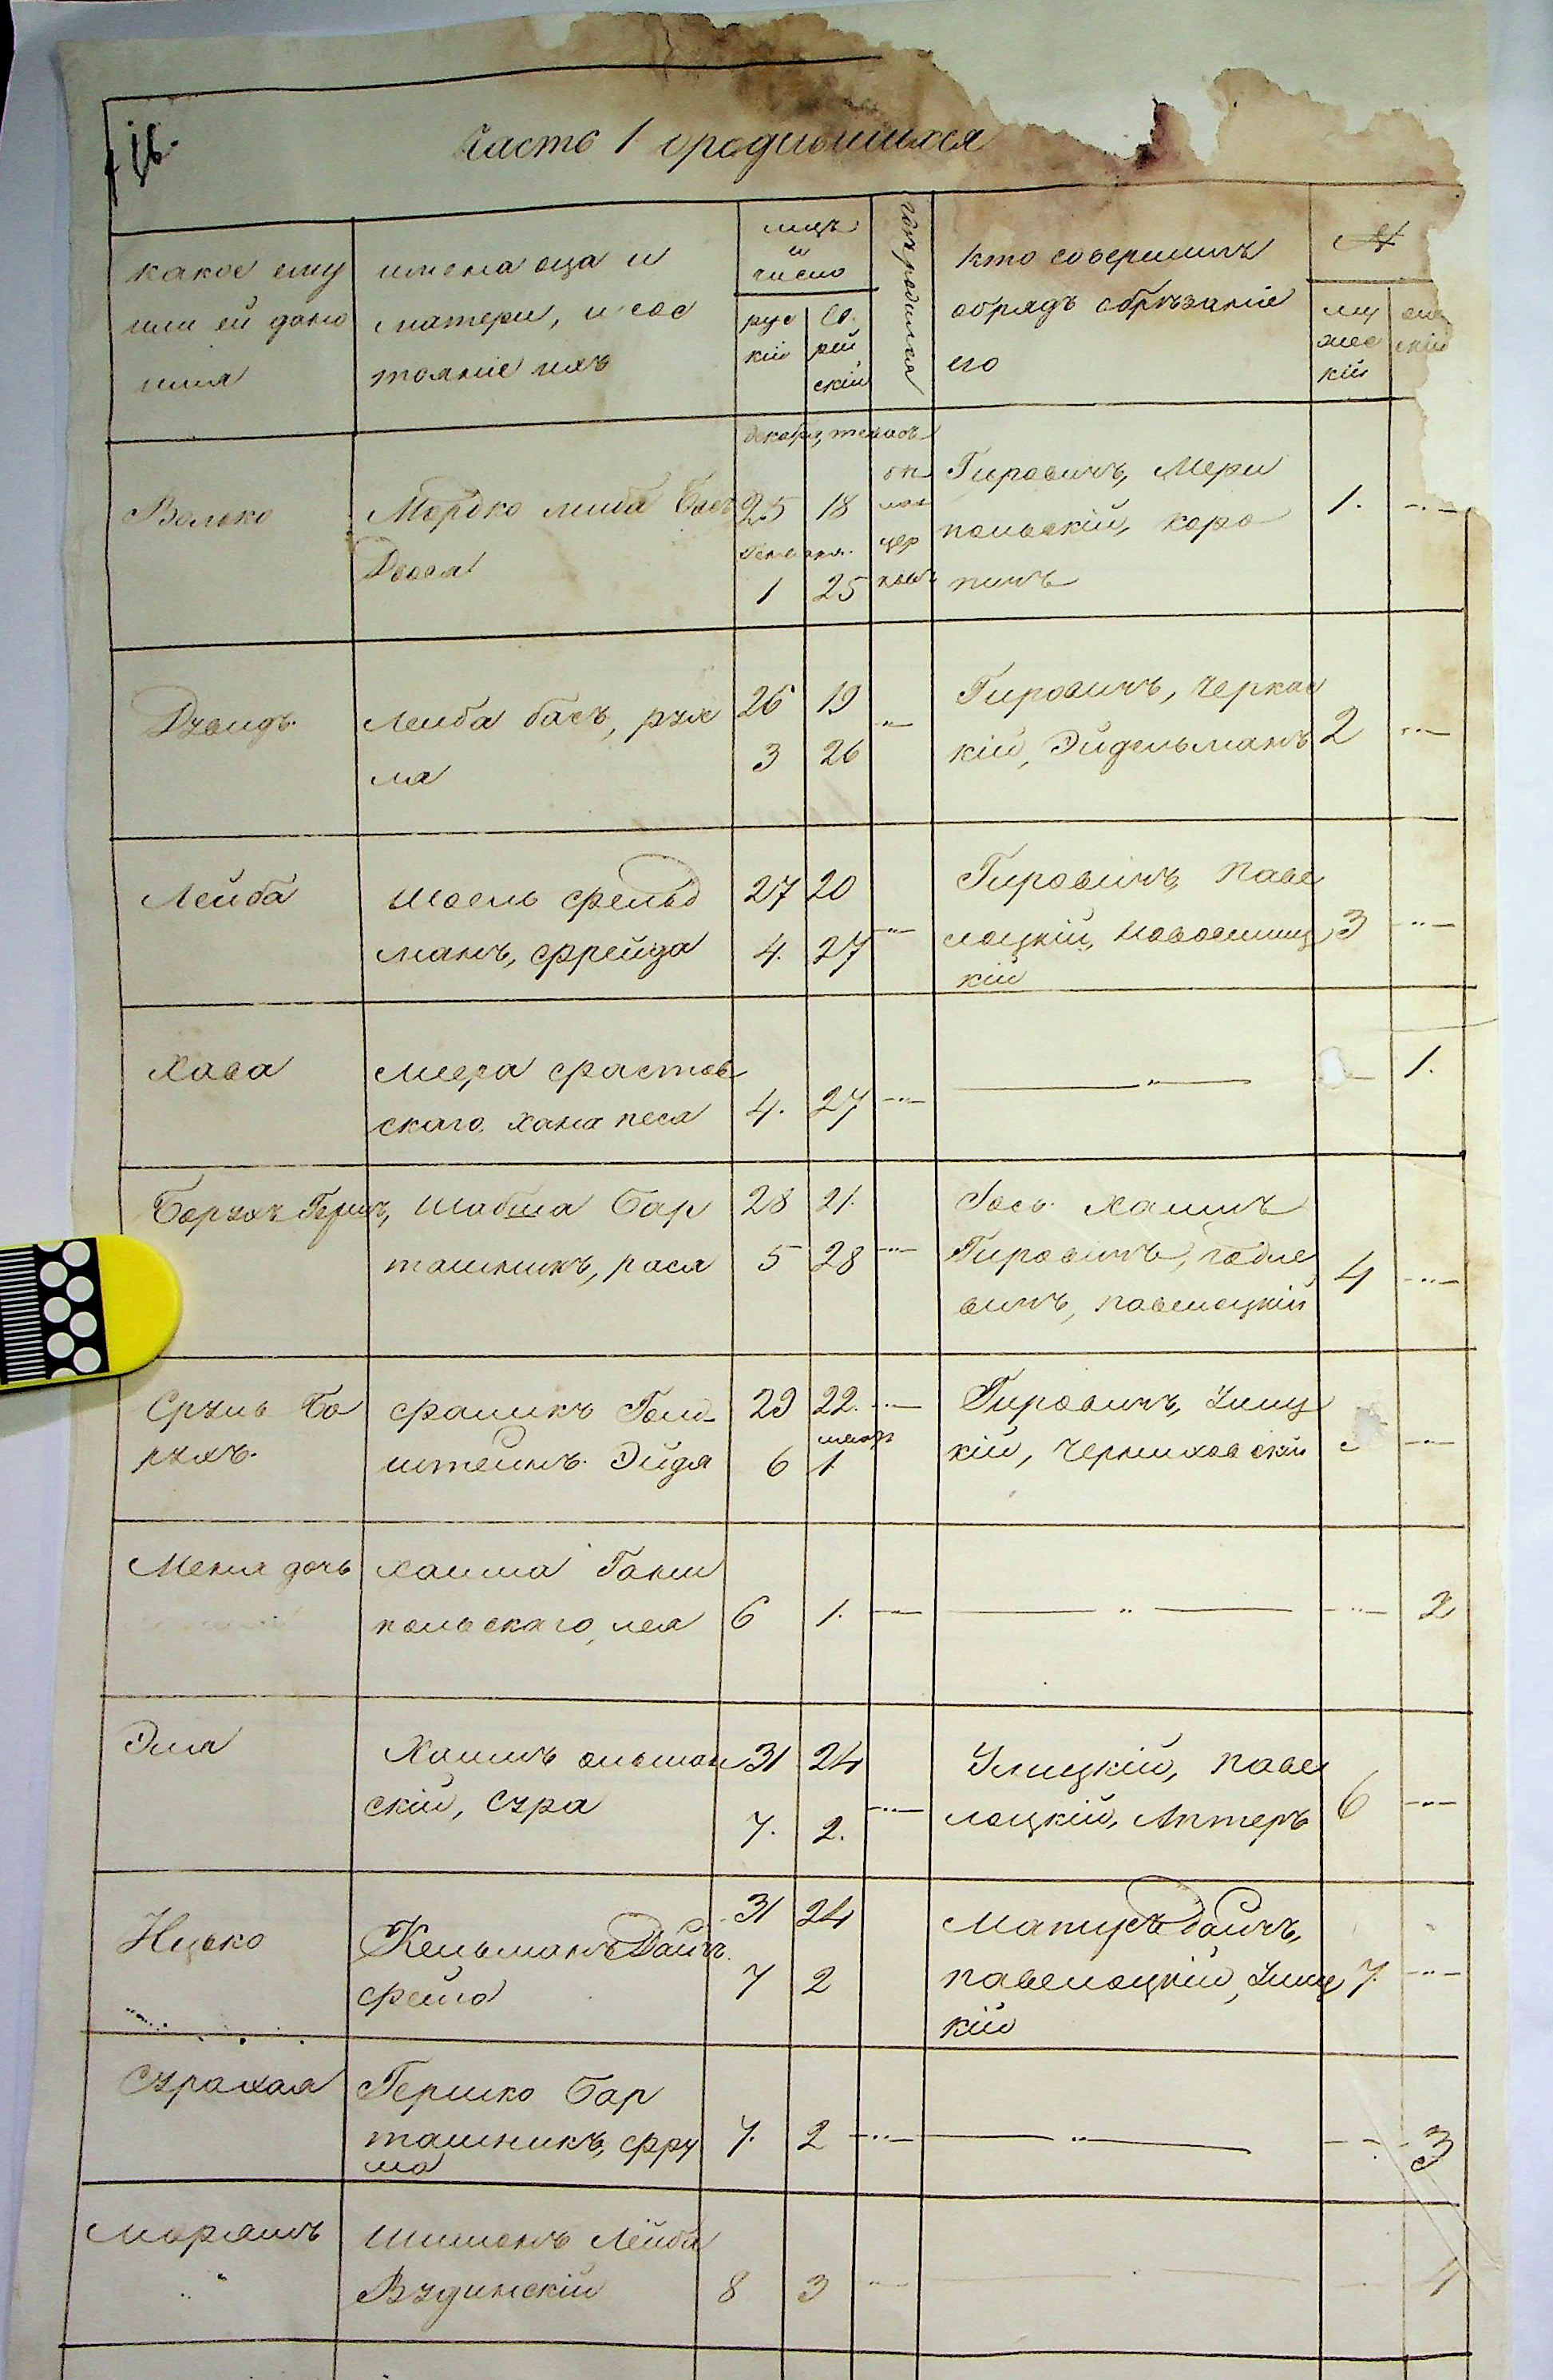 Часть 1 ородившихся
какое ему
или ей дано
имя
имена оца и
матери, и сос
тояніе ихъ
мцъ
и
число
рус
кій
ев
рей
скій
гдѣ родился
кто совершилъ
обрядъ обрѣзаніе
его
№
му
жес
кій
декабря, тевасъ
Волько
Мордко либа Басъ
Двося
25 18
января
1 25
Гировичъ, Мери
польскій, коро
пинъ
1.
Дувидъ
Лейба басъ, рух
ля
26 19
3 26
Гировичъ, черкас
кій, Эйдельманъ
2
Лейба
Шоель фельд
манъ, фрейда
27 20
4. 27
Гировичъ, паве
лоцкій, Новоселиц
кій
3
Хава
Меера фастов
скаго, хана песя
4. 27
1.
Борухъ Гершъ,
Шабша Бар
ташникъ, рася
28 21.
5 28
Іось Хаимъ
Гировичъ, годле
вичъ, павелоцкій
4
Сруль Бо
рухъ.
фроликъ Голд
штейнъ. Эйдя
29 22.
6 1.
Гировичъ, Улиц
кій, Черниховскій
Меня дочь
Хаима Гани
польскаго, лея
6 1.
2
Эля
Хаимъ ольшан
скій, Сура
31 24
7. 2.
Улицкій, паве
лоцкій, Аптеръ
6
Ицько
Кельманъ Дайчъ
фейга
31 24
7 2
Манусъ дайчъ,
павелоцкій, Улиц
кій
7.
Сурахая
Гершко Бар
ташникъ, фру
ма
7. 2
3
Марьямъ
Шимонъ Лейба
Вудинскій
8 3
4